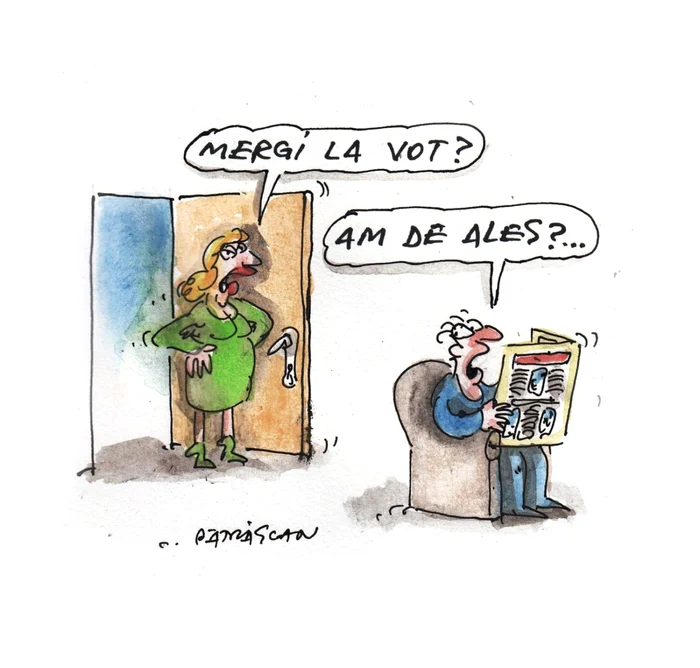 MERGi LA VOT?
AM DE ALES?...
C. PĂTRĂȘCAN